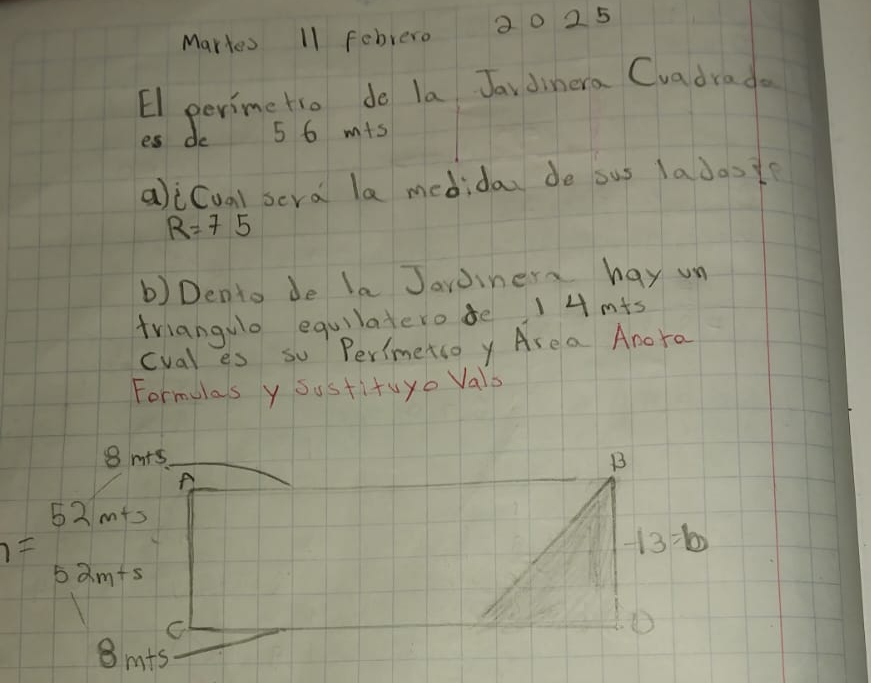 Martes 11 febrero 2025
El perímetro de la Jardinera Cuadrada
es de 56 mts
a) ¿Cual será la medida de sus lados?
R=75
b) Dento de la Jardinera hay un
triangulo equilatero de 14 mts
Cual es su Perímetro y Área Anota
Formulas y Sustituyo Vals
8 mts
A
B
52 mts
13=b
52mts
C
D
8 mts